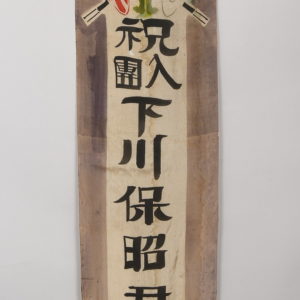 祝入團
下川保昭君